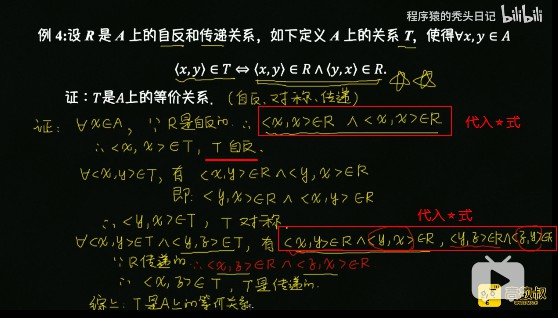 程序猿的秃头日记 bilibili
例 4:设 R 是 A 上的自反和传递关系，如下定义 A 上的关系 T，使得∀x, y ∈ A
⟨x, y⟩ ∈ T ⇔ ⟨x, y⟩ ∈ R ∧ ⟨y, x⟩ ∈ R. ☆☆
证：T是A上的等价关系. (自反、对称、传递)
证: ∀x∈A, ∵R是自反的 ∴ <x,x>∈R ∧ <x,x>∈R
代入★式
∴ <x,x>∈T, T自反.
∀<x,y>∈T, 有 <x,y>∈R ∧ <y,x>∈R
即 <y,x>∈R ∧ <x,y>∈R
∴ <y,x>∈T, T对称.
代入★式
∀<x,y>∈T ∧ <y,z>∈T, 有 <x,y>∈R ∧ <y,x>∈R, <y,z>∈R ∧ <z,y>∈R
∵R传递的 ∴ <x,z>∈R ∧ <z,x>∈R
∴ <x,z>∈T, T是传递的.
综上: T是A上的等价关系.
高数叔